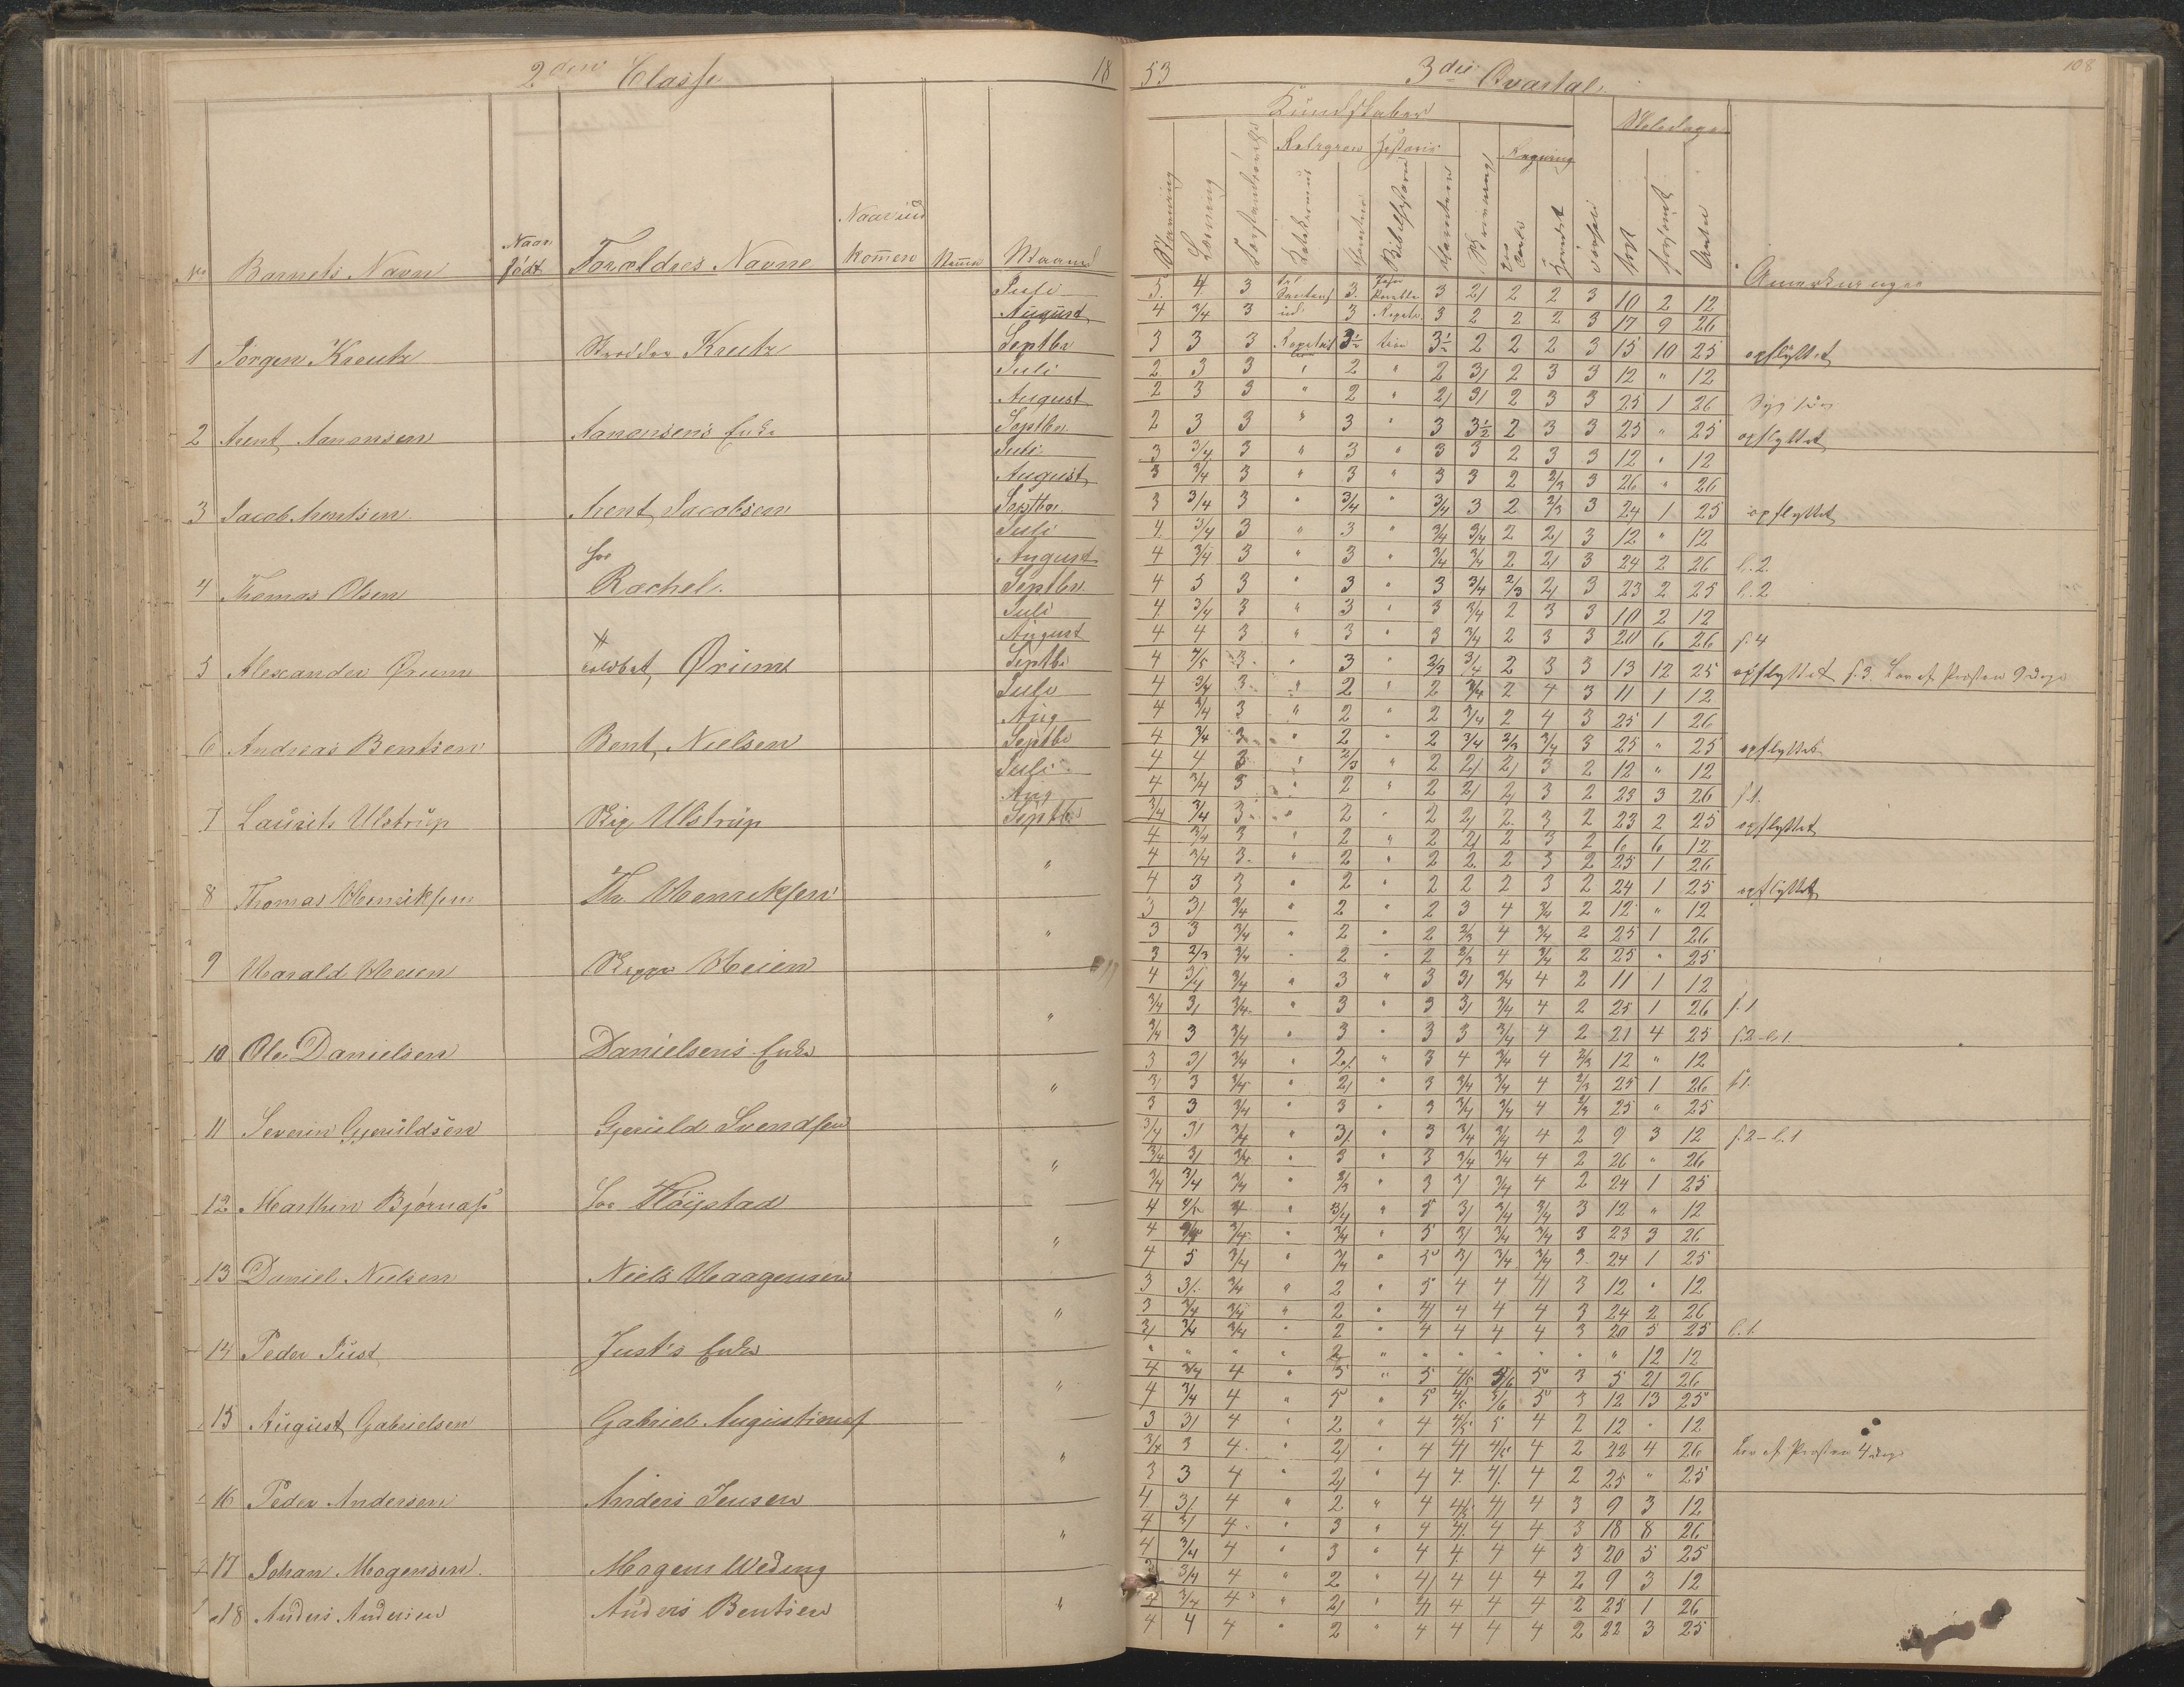 2den Classe 18
53 3die Qvartal. 108
Kundskaber
Religion Historie Regning
No Barnets Navn Naar født Foræltres Navne Naar ind kommen Maaned
Stavning Læsning Bibelhistorie Skrivning Anmerkninger
Juli 5. 4 3 3. 3 2/ 2 2 3 10 2 12
August 4 3/4 3 3 3 2 2 2 3 17 9 26
1 Jörgen Kreutz Kreutz Septbr 3 3 3 3½ 3½ 2 2 2 3 15 10 25 opflyttet
Juli 2 3 3 " 2 " 2 3/ 2 3 3 12 " 12
August 2 3 3 " 2 " 2/ 3/ 2 3 3 25 1 26
2 Arent Aanonsen Aanonsens Enke Septbr 2 3 3 " 3 " 3 3½ 2 3 3 25 " 25 opflyttet
Juli 3 3/4 3 " 3 " 3 3 2 3 3 12 " 12
August 3 3/4 3 " 3 " 3 3 2 2/3 3 26 " 26
3 Jacob Arentsen Arent Jacobsen Septbr 3 3/4 3 " 3/4 " 3/4 3 2 2/3 3 24 1 25 opflyttet
Juli 4. 3/4 3 " 3 " 3/4 3/4 2 2/ 3 12 " 12
August 4 3/4 3 " 3 " 3/4 3/4 2 2/ 3 24 2 26 l. 2.
4 Thomas Olsen Rachel. Septbr 4 5 3 " 3 " 3 3/4 2/3 2/ 3 23 2 25 l. 2
Juli 4 3/4 3 " 3 " 3 3/4 2 3 3 10 2 12
August 4 4 3 " 3 " 3 3/4 2 3 3 20 6 26 f. 4
5 Alexander Ørum Ørums Septbr 4 4/5 3 " 3 " 2/3 3/4 2 3 3 13 12 25 opflyttet f. 3.
Juli 4 3/4 3 " 2 " 2 3/4 2 4 3 11 1 12
Aug 4 3/4 3 " 2 " 2 3/4 2 4 3 25 1 26
6 Andreas Bentsen Bent Nielsen Septbr 4 3/4 3 " 2 " 2 3/4 2/3 3/4 3 25 " 25 opflyttet
Juli 4 4 3 " 2/3 " 2 2/ 2/ 3 2 12 " 12
Aug 4 3/4 3 " 2 " 2 2/ 2/ 3 2 23 3 26 f. 1.
7 Laurits Ulstrup Ulstrup Septbr 3/4 3/4 3 " 2 " 2 2/ 2 3 2 23 2 25 opflyttet
4 3/4 3 " 2 " 2 2/ 2 3 2 6 6 12
" 4 3/4 3 " 2 " 2 2 2 3 2 25 1 26
8 Thomas Henriksen Th. Henriksen 4 3 3 " 2 " 2 2 2 3 2 24 1 25 opflyttet
3 3/ 3/4 " 2 " 2 3 4 3/4 2 12 " 12
" 3 3 3/4 " 2 " 2 2/3 4 3/4 2 25 1 26
9 Harald Heien Heien 3 2/3 3/4 " 2 " 2 2/3 4 3/4 2 25 " 25
4 3/4 3/4 " 3 " 3 3/ 3/4 4 2 11 1 12
" 3/4 3/ 3/4 " 3 " 3 3/ 3/4 4 2 25 1 26 f. 1
10 Ole Danielsen Danielsens Enke 3/4 3 3/4 " 3 " 3 3 3/4 4 2 21 4 25 f. 2 - l. 1
3 3/ 3/4 " 2/ " 3 4 3/4 4 2/3 12 " 12
" 3/ 3 3/4 " 2/ " 3 3/4 3/4 4 2/3 25 1 26 f. 1.
11 Severin Gjeruldsen Gjeruld Svendsen 3 3 3/4 " 3 " 3 3/4 3/4 4 2/3 25 " 25
3/4 3/ 3/4 " 3/ " 3 3/4 3/4 4 2 9 3 12 f. 2 - l. 1
" 3/4 3/ 3/4 " 3 " 3 3/4 3/4 4 2 26 " 26
12 Marthin Björnas. Höystad 3/4 3/4 3/4 " 2/3 " 3 3/ 3/4 4 2 24 1 25
4 4/5 4 " 3/4 " 5 3/ 3/4 3/4 3 12 " 12
" 4 4/5 3/4 " 3/4 " 5 3/ 3/4 3/4 3 23 3 26
13 Daniel Nielsen Niels Haagensen 4 5 3/4 " 3/4 " 5 3/ 3/4 3/4 3 24 1 25
3 3/. 3/4 " 2 " 5 4 4 4/ 3 12 " 12
" 3 3/4 3/4 " 2 " 4/ 4 4 4 3 24 2 26
14 Peder Just Just's Enke 3/ 3/4 3/4 " 2 " 4 4 4 4 3 20 5 25 l. 1.
" " " " 2 " " " " " " " 12 12
" 4 3/4 4 " 5 " 5 4/5 5/6 5 3 5 21 26
15 August Gabrielsen Gabriel Augustinus 4 3/4 4 " 5 " 5 4/5 5/6 5 3 12 13 25
3 3/ 4 " 2 " 4 4/5 5 4 2 12 " 12
" 3/4 3 4 " 2/ " 4 4/ 4/5 4 2 22 4 26
16 Peder Andersen Anders Jensen 3 3 4 " 2/ " 4 4 4/ 4 2 25 " 25
4 3/ 4 " 2 " 4 4/5 4/ 4 3 9 3 12
" 4 3/ 4 " 3 " 4 4/ 4 4 3 18 8 26
17 Johan Mogensen. Mogens Weding 4 3/4 4 " 3 " 4 4 4 4 3 20 5 25
3/4 4 " 2 " 4/ 4 4 4 2 9 3 12
4 3/4 4 " 2/ " 4/ 4 4 4 2 25 1 26
18 Anders Andersen Anders Bentsen " 4 4 4 " 2 " 4 4 4 4 2 22 3 25